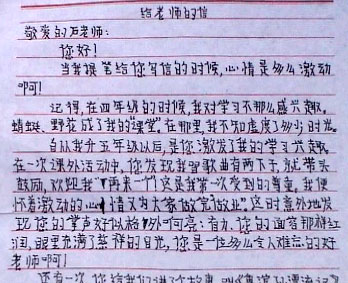 给老师的信
敬爱的石老师:
您好!
当我提笔给您写信的时候,心情是多么激动
啊!
记得,在四年级的时候,我对学习不那么感兴趣。
蜻蜓、野花成了我的"课堂"。在那里,我不知虚度了多少时光。
自从我升五年级以后,是您激发了我的学习兴趣。
在一次课外活动中,您发现我唱歌曲有两下子,就带头
鼓励,欢迎我"再来一个"这是我第一次受到的尊重,我便
怀着激动的心情又为大家做完做业"这时意外地发
现您的掌声好似格外响亮:有力,您的面容那样红
润,眼里充满了慈祥的目光,您是一位多么令人难忘的好
老师啊!
还有一次,您给我们讲了个故事,叫《鲁滨逊漂流记》